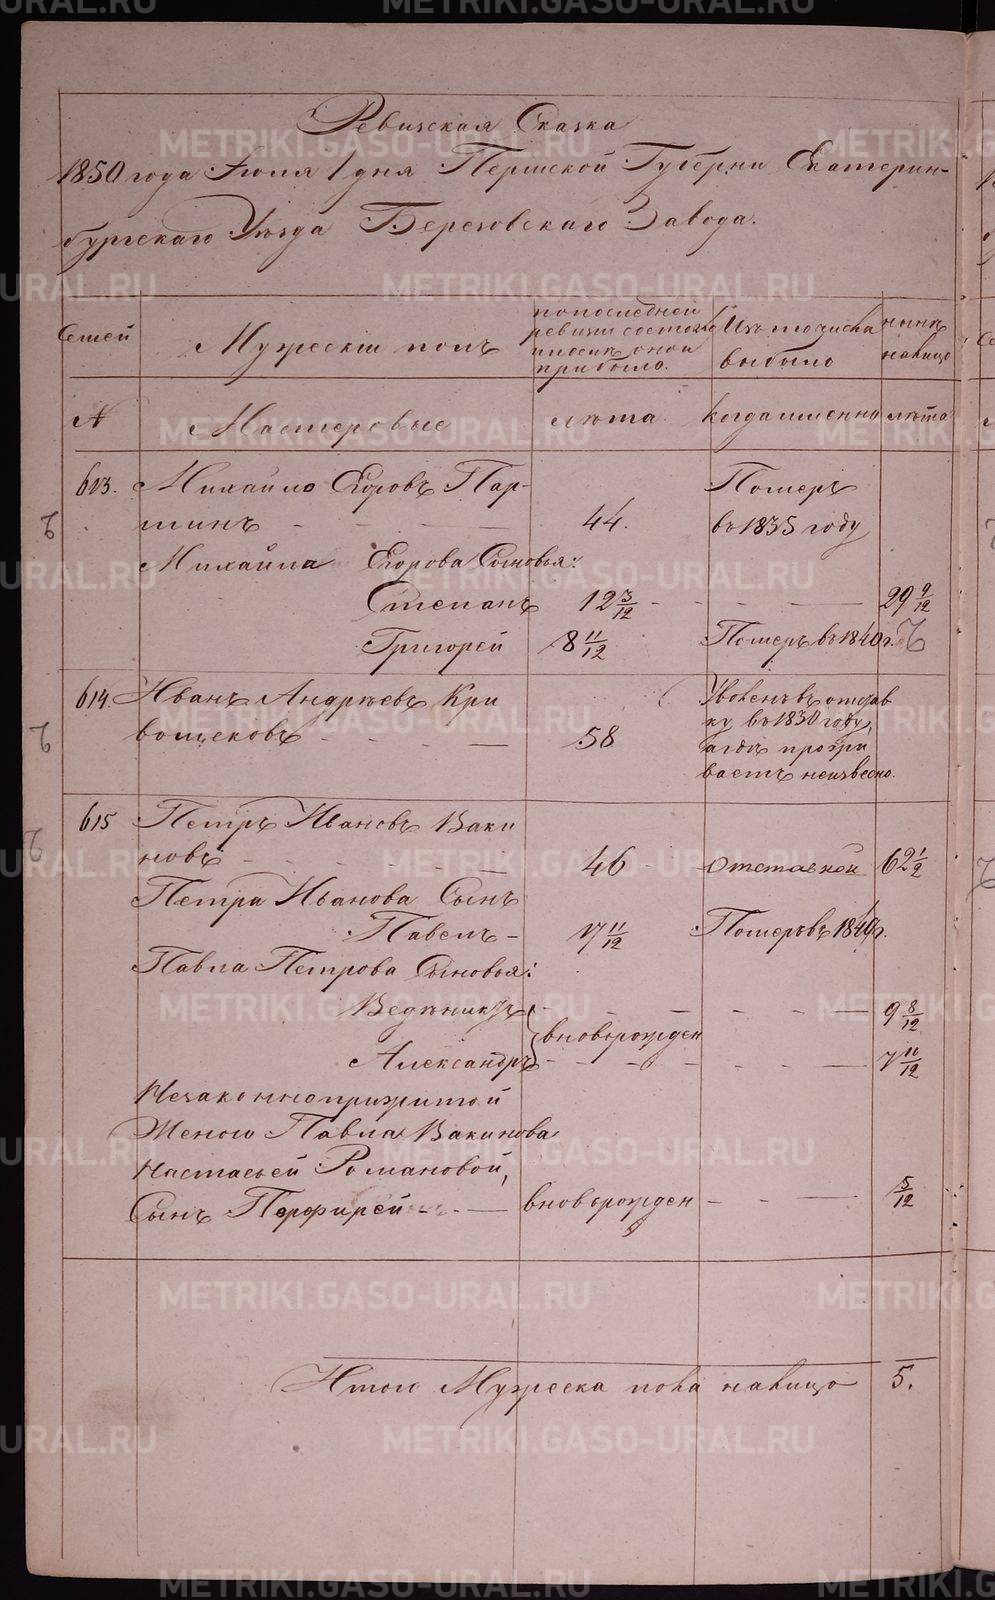 Ревизская Сказка
1850 года Июля 1 дня Пермской Губерни Екатерин-
бургскаго Уѣзда Березовскаго Завода.
Семей
Мужескій полъ
по последней
ревизіи состояло
и после оной
прибыло.
Изъ того числа
выбыло
нынѣ
налицо
N
Мастеровые
лѣта
когда именно
лѣта
613. Михайло Егоровъ Пар-
шинъ 44. Померъ
въ 1835 году
Михайла Егорова Сыновья:
Степанъ 12 3/12 29 9/12
Григорей 8 11/12 Померъ въ 1840 г.
614. Иванъ Андреевъ Кри
вощековъ 58
Уволенъ въ отстав
ку въ 1830 году,
а где прожи
ваетъ неизвесно.
615 Петръ Ивановъ Ваки
новъ 46 отставной 62 1/2
Петра Иванова Сынъ
Павелъ 17 11/12 Померъ въ 1849 г.
Павла Петрова Сыновья:
Ведениктъ 9 8/12
вновьрожден
Александръ 7 10/12
Незаконноприжитой
Женою Павла Вакинова
Настасьей Романовой,
Сынъ Перфирей вновьрожден 5/12
Итого Мужеска пола налицо 5.
METRIKI.GASO-URAL.RU